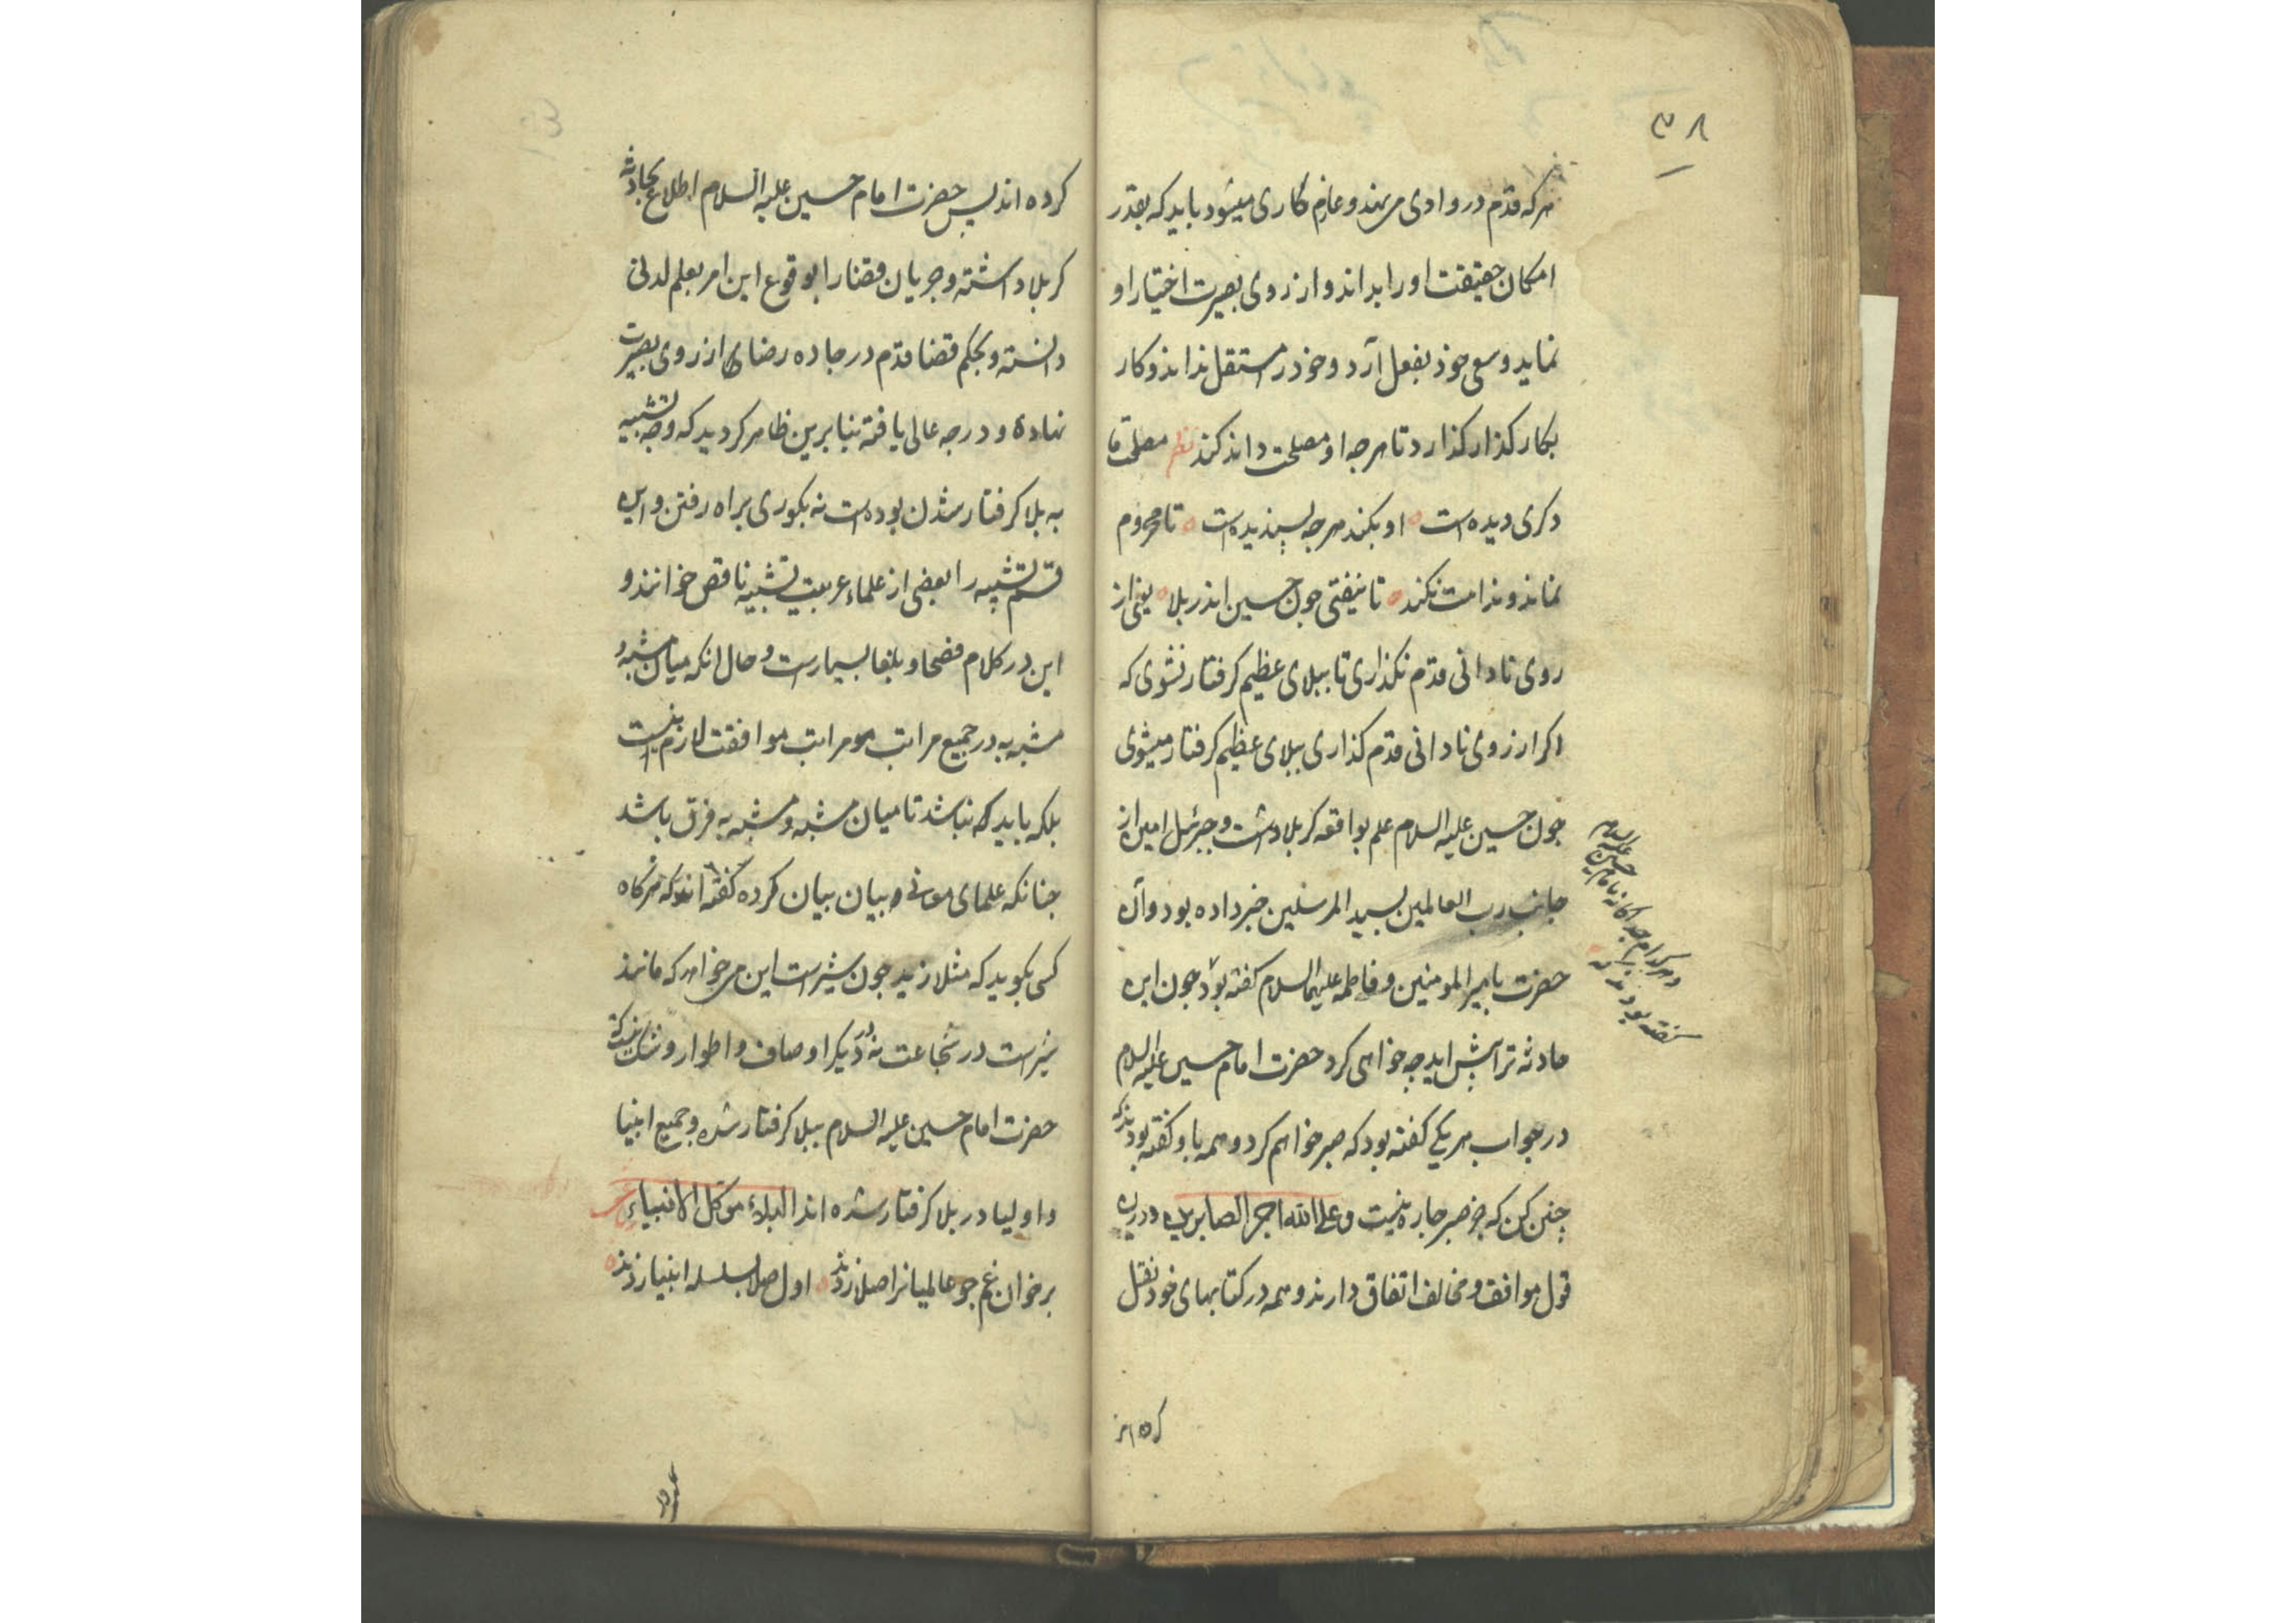 ۳۸
هرکه قدم در وادی می‌نهد و عازم کاری میشود باید که بقدر
امکان حقیقت او را بداند و از روی بصیرت اختیار او
نماید و سعی خود بفعل آرد و خود را مستقل نداند و کار
بکار کذار کذارد تا هرچه او مصلحت داند کند نظم مصلحت ما
دکری دیده است او بکند هرچه پسندیده است تا محروم
نماند و ندامت نکند تا نیفتی چون حسین اندر بلا یعنی از
روی نادانی قدم نکذاری تا ببلای عظیم کرفتار نشوی که
اکر از روی نادانی قدم کذاری ببلای عظیم کرفتار میشوی
چون حسین علیه السلام علم بواقعه کربلا داشت و جبرئیل امین از
جانب رب العالمین بسید المرسلین خبر داده بود و آن
حضرت بامیر المومنین و فاطمه علیهما السلام کفته بود چون این
حادثه ترا پیش اید چه خواهی کرد حضرت امام حسین علیه السلام
در جواب هر یکی کفته بود که صبر خواهم کرد و همه باو کفته بودند که
چنین کن که جز صبر چاره نیست و علی الله اجر الصابرین و درین
قول موافق و مخالف اتفاق دارند و همه در کتابهای خود نقل
و هر کدام جداکانه بامام حسین علیه السلام
کفته بودند
کرده‌اند
کرده اند پس حضرت امام حسین علیه السلام اطلاع بحادثه
کربلا داشته و جریان قضا را بوقوع این امر بعلم لدنی
دانسته و بحکم قضا قدم در جاده رضای از روی بصیرت
نهاده و درجه عالی یافته بنابرین ظاهر کردید که وجه تشبیه
به بلا کرفتار شدن بوده است نه بکوری براه رفتن و این
قسم تشبیه را بعضی از علماء عربیت تشبیه ناقص خوانند و
این در کلام فصحا و بلغا بسیارست و حال انکه میان مشبه و
مشبه به در جمیع مراتب موافقت لازم نیست
بلکه باید که نباشد تا میان مشبه و مشبه به فرق باشد
چنانکه علمای معانی و بیان بیان کرده کفته اند که هرکاه
کسی بکوید که مثلا زید چون شیرست این می خواهد که مانند
شیرست در شجاعت نه در دیکر اوصاف و اطوار و شک نیست که
حضرت امام حسین علیه السلام ببلا کرفتار شده و جمیع انبیا
و اولیا در بلا کرفتار شده اند البلاء موکل الانبیاء
بر خوان غم چو عالمیانرا صلا زدند اول صلا بسلسله انبیا زدند